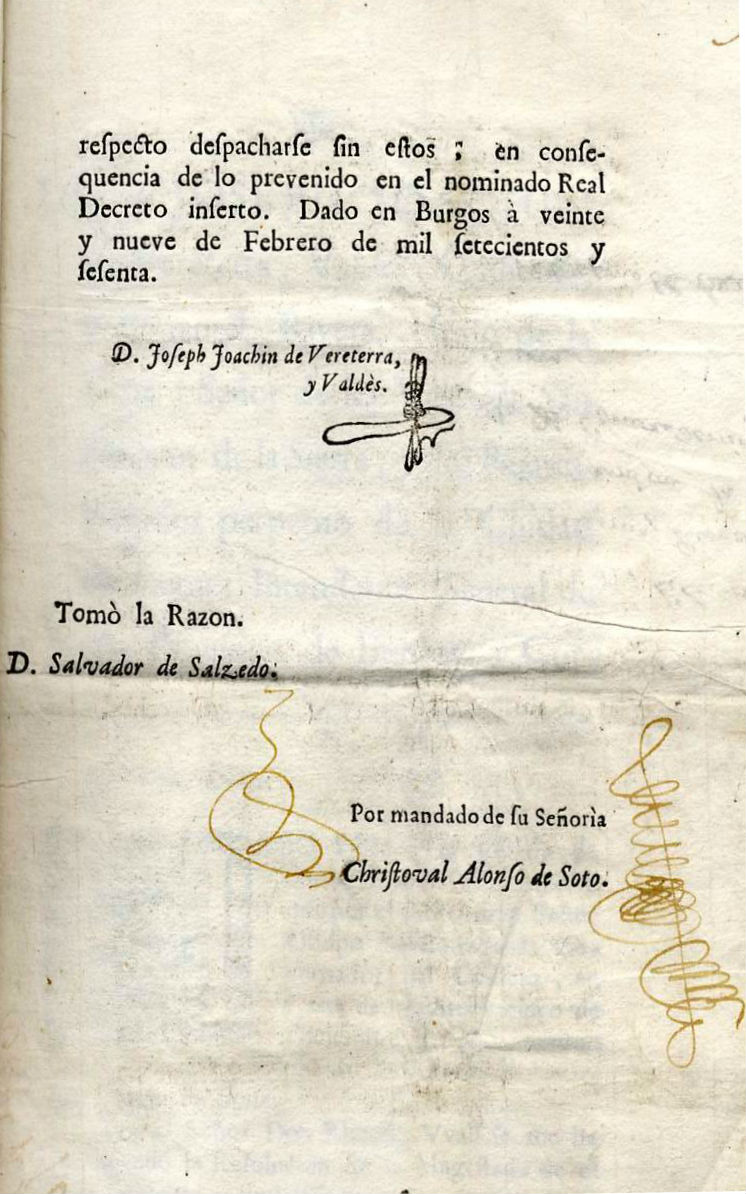 reſpecto deſpacharſe ſin eſtos ; en conſe-
quencia de lo prevenido en el nominado Real
Decreto inſerto. Dado en Burgos à veinte
y nueve de Febrero de mil ſetecientos y
ſeſenta.
D. Joſeph Joachin de Vereterra,
y Valdès.
Tomò la Razon.
D. Salvador de Salzedo.
Por mandado de ſu Señorìa
Chriſtoval Alonſo de Soto.